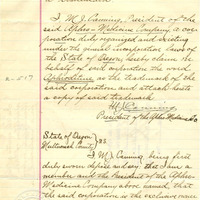 I, M. J. Canning, President of the
said Aphro-Medicine Company a cor-
poration duly organized and existing
under the general incorporation laws of
the State of Oregon, hereby claims on
behalf of said corporation the word
Aphroditine as the trademark of the
said corporation and attach hereto
a copy of said trademark
M J Canning
President of the Aphro Medicine Co
State of Oregon } ss
Multnomah County
I M J Canning being first
duly sworn depose and say that I am a
member and the President of the Aphro
Medicine Company above named, that
the said corporation is the exclusive owner